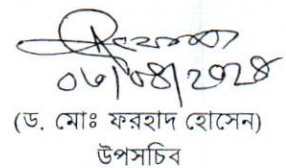 ০৮/০৪/২০২৪
(ড. মোঃ ফরহাদ হোসেন)
উপসচিব